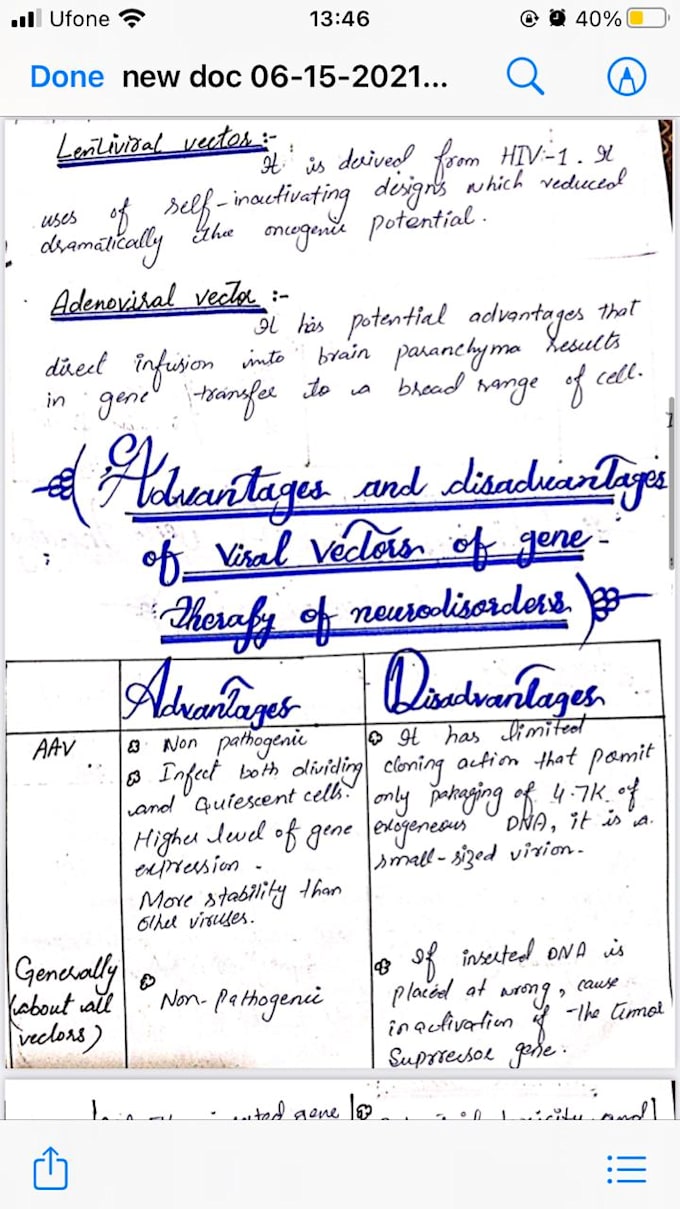 Ufone 13:46 40%
Done new doc 06-15-2021...
Lentiviral vector :-
It is derived from HIV-1. It
uses of self-inactivating designs which reduced
dramatically the oncogenic potential.
Adenoviral vector :-
It has potential advantages that
direct infusion into brain paranchyma results
in gene transfer to a broad range of cell.
Advantages and disadvantages
of Viral Vectors of gene-
Therapy of neurodisorders
Advantages Disadvantages
AAV
Non pathogenic
Infect both dividing
and Quiescent cells.
Higher level of gene
expression.
More stability than
other viruses.
It has limited
cloning action that permit
only pakaging of 4.7K of
exogeneous DNA, it is a
small-sized virion.
Generally
(about all
vectors)
Non-Pathogenic
If inserted DNA is
placed at wrong, cause
inactivation of the tumor
Supressor gene.